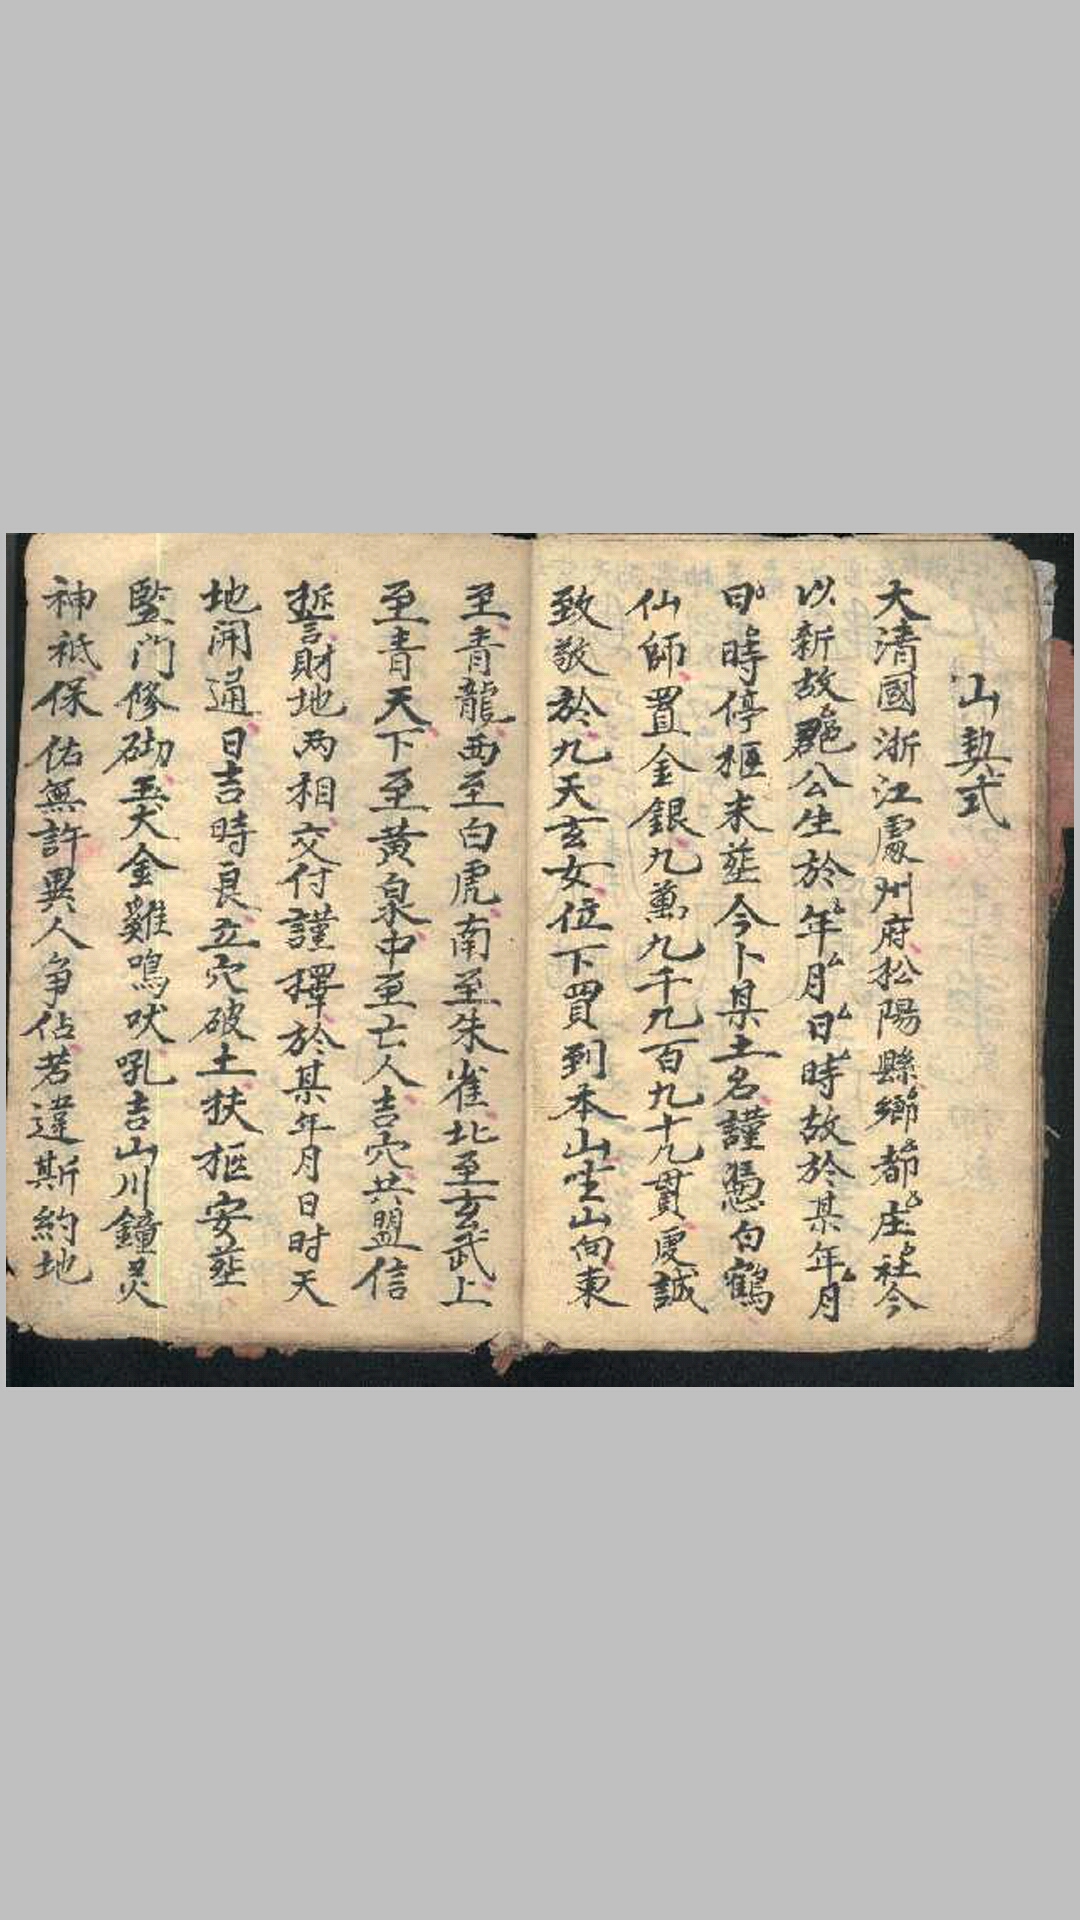 山契式
大清國浙江處州府松陽縣鄉都庄社今
以新故郡公生於年月日時故於某年月
日時停柩未葬今卜某土名謹憑白鶴
仙師置金銀九萬九千九百九十九貫虔誠
致敬於九天玄女位下買到本山坐山向東
至青龍西至白虎南至朱雀北至玄武上
至青天下至黃泉中至亡人吉穴共盟信
誓財地两相交付謹擇於某年月日时天
地開通日吉時良立穴破土扶柩安葬
監門修砌玉犬金雞鳴吠吼吉山川鐘灵
神祇保佑無許異人争佔若違斯約地